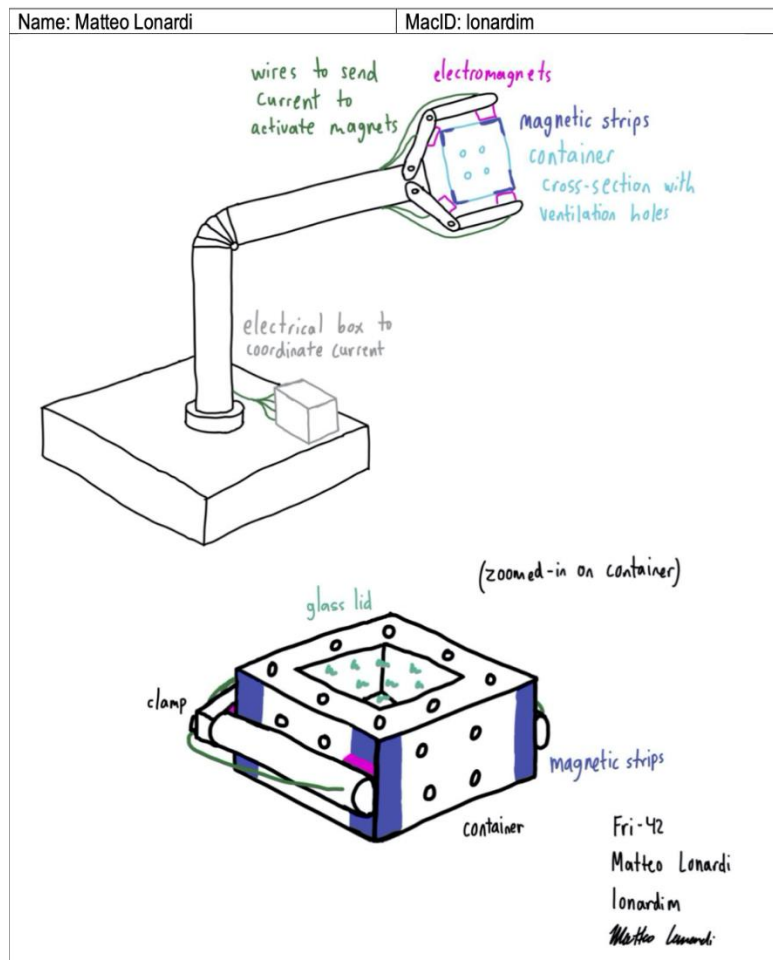 Name: Matteo Lonardi
MacID: lonardim
wires to send
current to
activate magnets
electromagnets
magnetic strips
container
cross-section with
ventilation holes
electrical box to
coordinate current
(zoomed-in on container)
glass lid
clamp
magnetic strips
container
Fri-42
Matteo Lonardi
lonardim
Matteo Lonardi